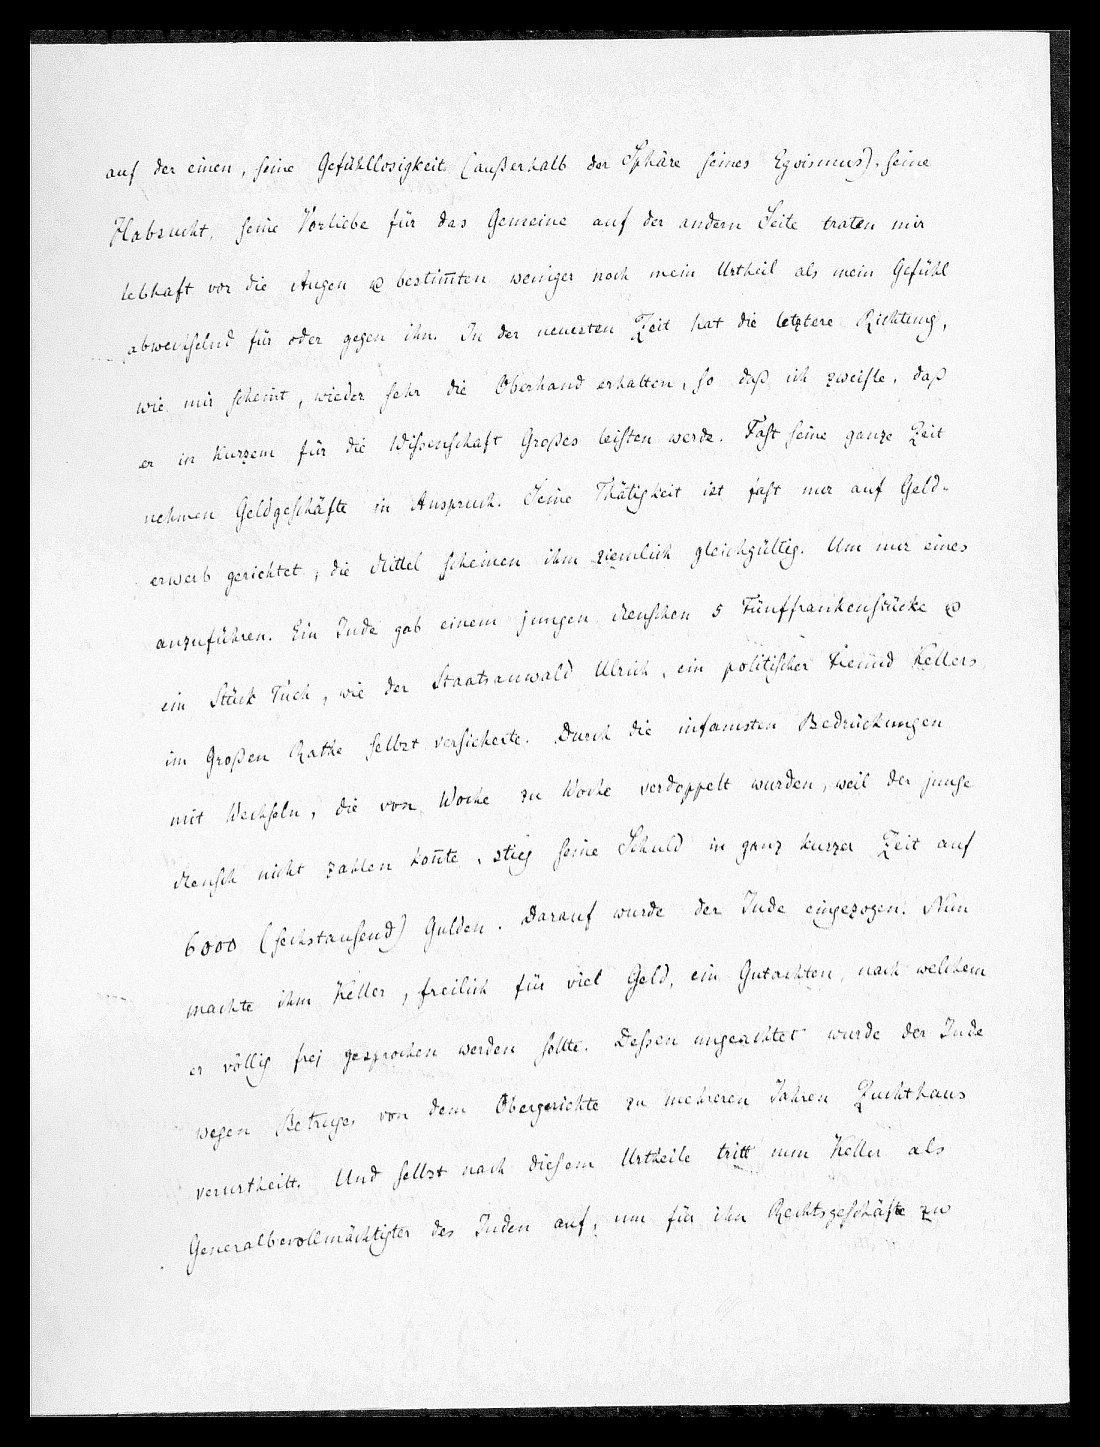 auf der einen, seine Gefühllosigkeit (außerhalb der Sphäre seines Egoismus), seine
Habsucht, seine Vorliebe für das Gemeine auf der andern Seite traten mir
lebhaft vor die Augen & bestim̅ten weniger noch mein Urtheil als mein Gefühl
abwechselnd für oder gegen ihn. In der neuesten Zeit hat die letztere Richtung,
wie mir scheint, wieder sehr die Oberhand erhalten, so daß ich zweifle, daß
er in Kurzem für die Wissenschaft Großes leisten werde. Fast seine ganze Zeit
nehmen Geldgeschäfte in Anspruch. Seine Thätigkeit ist fast nur auf Geld-
erwerb gerichtet; die Mittel scheinen ihm ziemlich gleichgültig. Um nur eines
anzuführen. Ein Jude gab einem jungen Menschen 5 Fünffrankenstücke &
ein Stück Tuch, wie der Staatsanwald Ulrich, ein politischer Freund Kellers
im Großen Rathe selbst versicherte. Durch die infamsten Bedrückungen
mit Wechseln, die von Woche zu Woche verdoppelt wurden, weil der junge
Mensch nicht zahlen kon̅te, stieg seine Schuld in ganz kurzer Zeit auf
6000 (sechstausend) Gulden. Darauf wurde der Jude eingezogen. Nun
machte ihm Keller, freilich für viel Geld, ein Gutachten, nach welchem
er völlig frej gesprochen werden sollte. Dessen ungeachtet wurde der Jude
wegen Betruges von dem Obergerichte zu mehreren Jahren Zuchthaus
verurtheilt. Und selbst nach diesem Urtheile tritt nun Keller als
Generalbevollmächtigter des Juden auf, um für ihn Rechtsgeschäfte zu